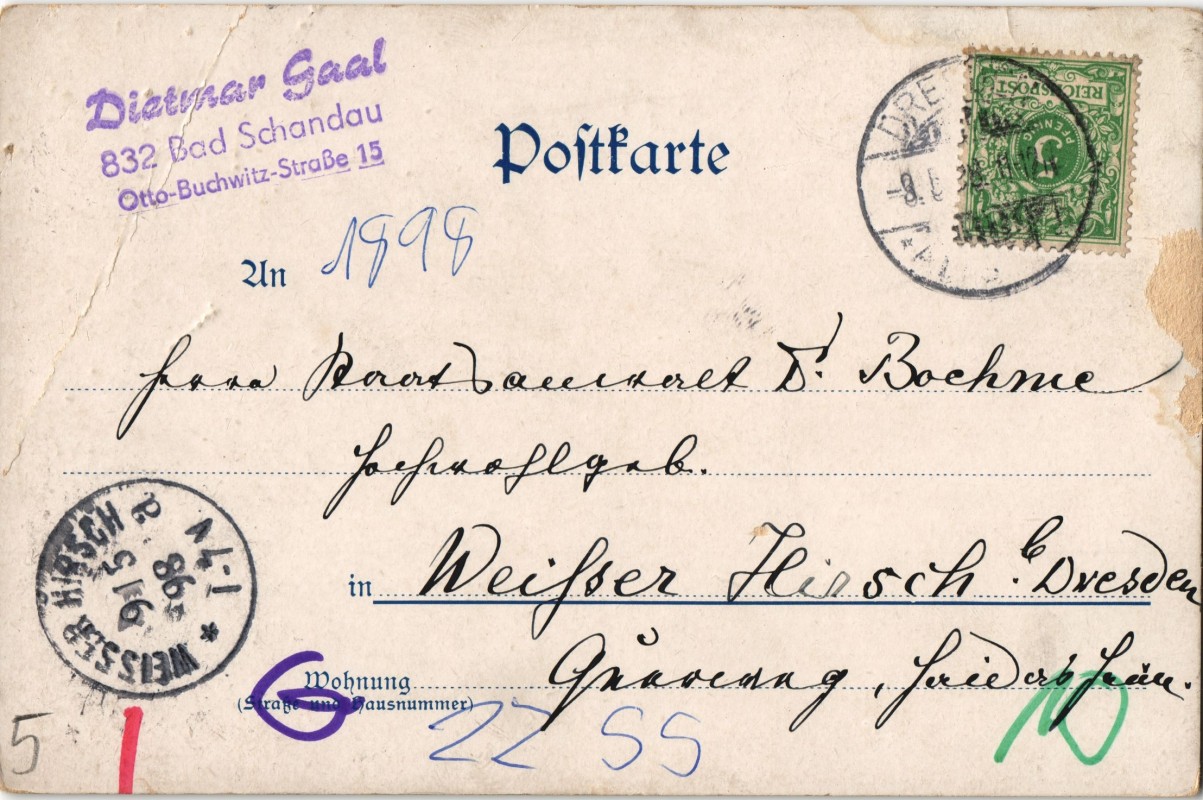 Dietmar Gaal
832 Bad Schandau
Otto-Buchwitz-Straße 15
Postkarte
REICHSPOST
5
PFENNIG
DRESDEN
11-12
An 1898
Herrn Staatsanwalt Dr. Boehme
Hochwohlgeb.
in Weisser Hirsch b. Dresden
Wohnung Querweg,
(Straße und Hausnummer)
WEISSER HIRSCH
9 5
98
1-7 V
5
22 55
10